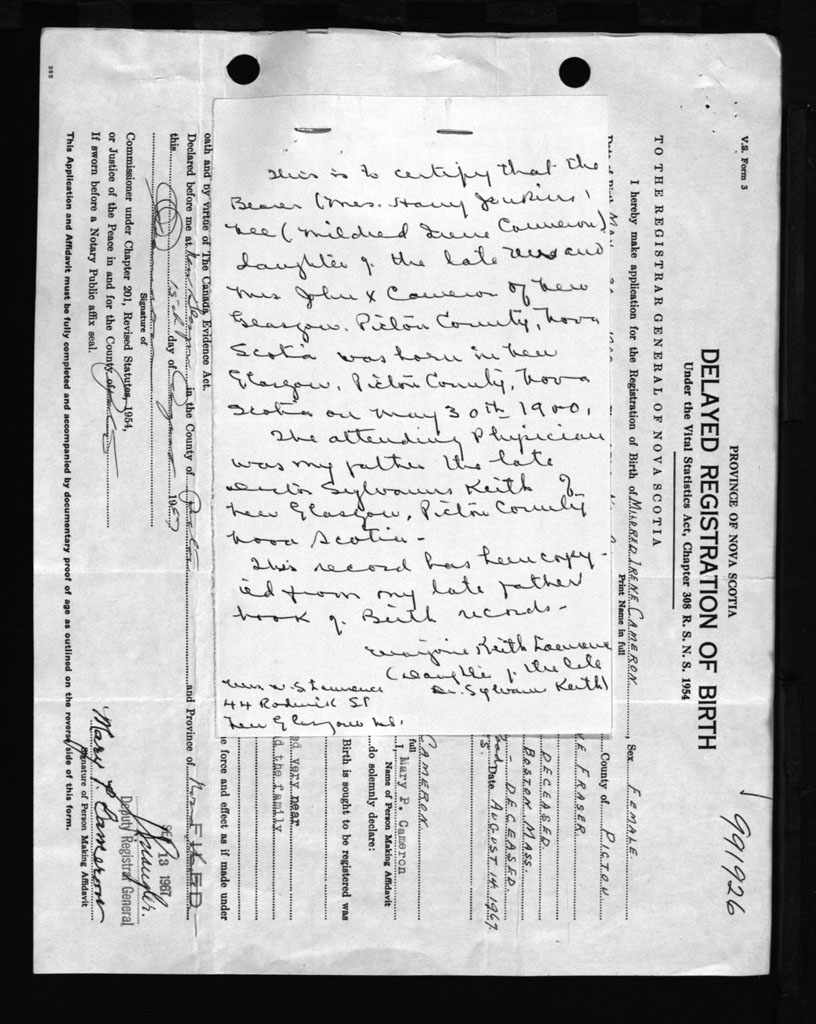 This is to certify that the
Bearer (Mrs. Harry Jenkins)
nee (Mildred Irene Cameron)
daughter of the late Mr and
Mrs John X Cameron of New
Glasgow, Pictou County, Nova
Scotia was born in New
Glasgow, Pictou County, Nova
Scotia on May 30th 1900.
The attending Physician
was my father the late
Doctor Sylvanus Keith of
New Glasgow, Pictou County
Nova Scotia -
This record has been copy-
ied from my late father
book of Birth records -
Marjorie Keith Lawrence
(daughter of the late
Dr. Sylvanus Keith)
Mrs W. S Lawrence
44 Roderick St
New Glasgow N.S.
991926
V.S. Form 3
PROVINCE OF NOVA SCOTIA
DELAYED REGISTRATION OF BIRTH
Under the Vital Statistics Act, Chapter 308 R. S. N. S. 1954
TO THE REGISTRAR GENERAL OF NOVA SCOTIA
I hereby make application for the Registration of Birth of MILDRED IRENE CAMERON, Sex FEMALE
Print Name in full
County of PICTOU
FRASER
DECEASED
BOSTON MASS.
- DECEASED
Date AUGUST 14 1967
CAMERON
full
I, Mary P. Cameron
Name of Person Making Affidavit
do solemnly declare:
Birth is sought to be registered was
very near
the family
force and effect as if made under
oath and ny virtue of The Canada Evidence Act.
Declared before me at New Glasgow in the County of Pictou and Province of
this 15th day of August 1967
Signature of
Commissioner under Chapter 201, Revised Statutes, 1954,
or Justice of the Peace in and for the County of
If sworn before a Notary Public affix seal.
FILED
13 1967
Deputy Registrar General
Mary P. Cameron
Signature of Person Making Affidavit
This Application and Affidavit must be fully completed and accompanied by documentary proof of age as outlined on the reverse side of this form.